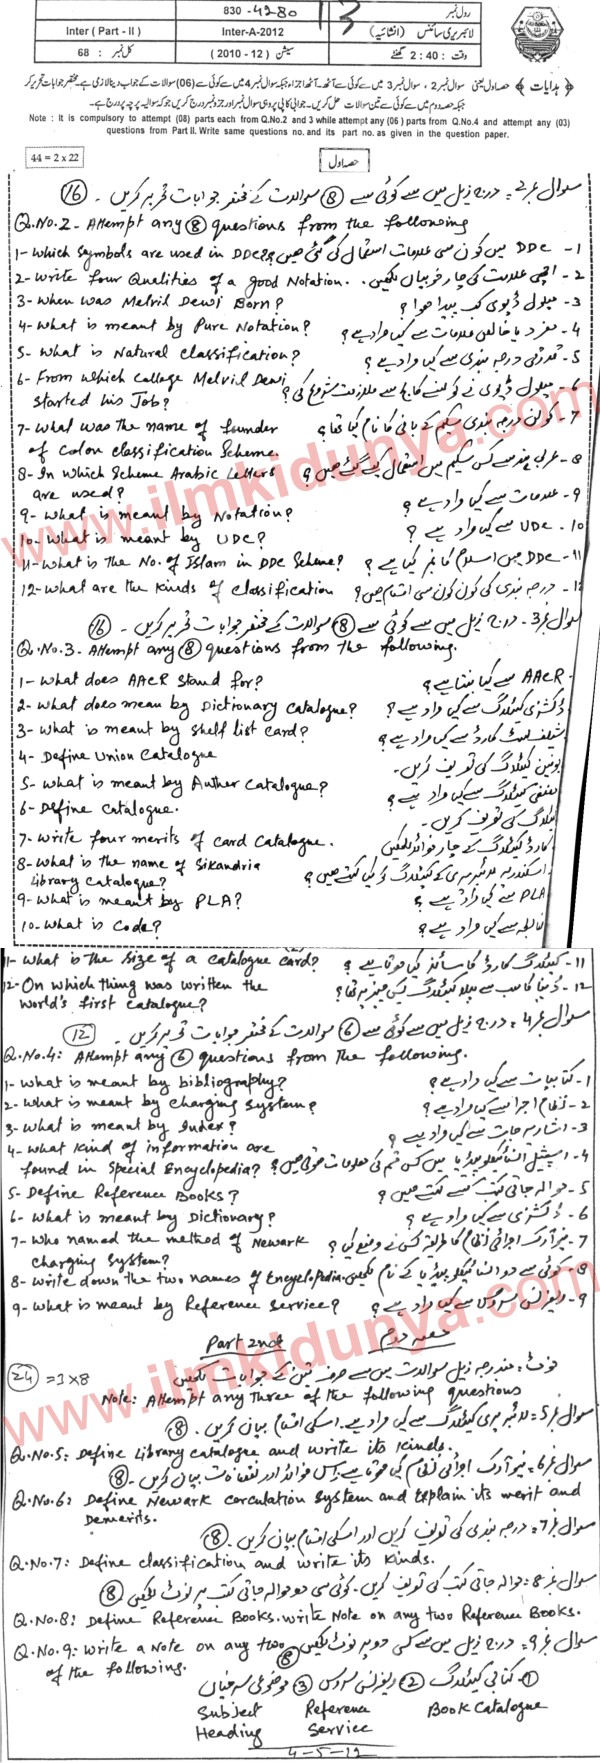 830 -4280 13 رول نمبر
لائبریری سائنس (انشائیہ) Inter-A-2012 Inter (Part - II)
وقت : 2:40 گھنٹے سیشن (2010 - 12) کل نمبر : 68
Note : It is compulsory to attempt (08) parts each from Q.No.2 and 3 while attempt any (06) parts from Q.No.4 and attempt any (03)
questions from Part II. Write same questions no. and its part no. as given in the question paper.
44 = 2 x 22 حصہ اول
سوال نمبر 2۔ درج ذیل میں سے کوئی سے (8) سوالات کے مختصر جوابات تحریر کریں۔ (16)
Q.No.2- Attempt any (8) questions from the following
1- which symbols are used in DDC? DDC میں کون سی علامات استعمال کی گئی ہیں؟ -1
2- Write four Qualities of a good Notation. اچھی علامت کی چار خوبیاں لکھیں۔ -2
3- When was Melvil Dewi Born? میلول ڈیوی کب پیدا ہوا؟ -3
4- What is meant by Pure Notation? مفرد یا خالص علامات سے کیا مراد ہے؟ -4
5- What is Natural classification? قدرتی درجہ بندی سے کیا مراد ہے؟ -5
6- From which College Melvil Dewi started his Job? میلول ڈیوی نے کون سے کالج سے ملازمت شروع کی؟ -6
7- What was the name of founder of Colon classification Scheme. کولن درجہ بندی سکیم کے بانی کا نام کیا تھا؟ -7
8- In which Scheme Arabic Letters are used? عربی ہندسے کس سکیم میں استعمال کیے گئے ہیں؟ -8
9- What is meant by Notation? علامات سے کیا مراد ہے؟ -9
10- What is meant by UDC? UDC سے کیا مراد ہے؟ -10
11- What is the No. of Islam in DDC Scheme? DDC میں اسلام کا نمبر کیا ہے؟ -11
12- What are the kinds of classification درجہ بندی کی کون کون سی اقسام ہیں؟ -12
سوال نمبر 3۔ درج ذیل میں سے کوئی سے (8) سوالات کے مختصر جوابات تحریر کریں۔ (16)
Q.No.3- Attempt any (8) questions from the following.
1- What does AACR stand for? AACR سے کیا بنتا ہے؟
2- What does mean by Dictionary Catalogue? ڈکشنری کیٹلاگ سے کیا مراد ہے؟
3- What is meant by shelf list card? شیلف لسٹ کارڈ سے کیا مراد ہے؟
4- Define Union Catalogue یونین کیٹلاگ کی تعریف کریں۔
5- What is meant by Auther Catalogue? مصنفی کیٹلاگ سے کیا مراد ہے؟
6- Define catalogue. کیٹلاگ کی تعریف کریں۔
7- Write four merits of card Catalogue. کارڈ کیٹلاگ کے چار فوائد لکھیں
8- What is the name of Sikandria Library Catalogue? اسکندریہ لائبریری کے کیٹلاگ کو کیا کہتے ہیں؟
9- What is meant by PLA? PLA سے کیا مراد ہے؟
10- What is Code? ضابطہ سے کیا مراد ہے؟
11- What is the size of a catalogue card? کیٹلاگ کارڈ کا سائز کیا ہوتا ہے؟ -11
12- On which thing was written the world's first catalogue? دنیا کا سب سے پہلا کیٹلاگ کس چیز پر تھا؟ -12
سوال نمبر 4۔ درج ذیل میں سے کوئی سے (6) سوالات کے مختصر جوابات تحریر کریں۔ (12)
Q.No.4: Attempt any (6) questions from the following.
1- What is meant by bibliography? کتابیات سے کیا مراد ہے؟ -1
2- What is meant by Charging System? نظام اجرا سے کیا مراد ہے؟ -2
3- What is meant by Index? اشاریہ جات سے کیا مراد ہے؟ -3
4- What kind of information are found in Special Encyclopedia? اسپیشل انسائیکلوپیڈیا میں کس قسم کی معلومات ہوتی ہیں؟ -4
5- Define Reference Books? حوالہ جاتی کتب کسے کہتے ہیں؟ -5
6- What is meant by Dictionary? ڈکشنری سے کیا مراد ہے؟ -6
7- Who named the method of Newark charging System? نیوآرک اجرائی نظام کا طریقہ کس نے وضع کیا؟ -7
8- Write down the two names of Encyclopedia. کوئی سے دو انسائیکلوپیڈیا کے نام لکھیں -8
9- What is meant by Reference Service? ریفرنس سروس سے کیا مراد ہے؟ -9
Part 2nd حصہ دوم
(24) = 3 x 8 نوٹ: مندرجہ ذیل سوالات میں سے صرف تین کے جوابات لکھیں
Note: Attempt any three of the following questions
سوال نمبر 5: لائبریری کیٹلاگ سے کیا مراد ہے۔ اسکی اقسام بیان کریں۔ (8)
Q.No.5: Define Library catalogue and write its kinds.
سوال نمبر 6: نیوآرک اجرائی نظام کیا ہوتا ہے۔ اس فوائد اور نقصانات بیان کریں۔ (8)
Q.No.6: Define Newark carculation system and Explain its merit and Demerits.
سوال نمبر 7: درجہ بندی کی تعریف کریں اور اسکی اقسام بیان کریں۔ (8)
Q.No.7: Define classification and write its Kinds.
سوال نمبر 8: حوالہ جاتی کتب کی تعریف کریں۔ کوئی سی دو حوالہ جاتی کتب پر نوٹ لکھیں (8)
Q.No.8: Define Reference Books. Write Note on any two Reference Books.
سوال نمبر 9: درج ذیل میں سے کسی دو پہ نوٹ لکھیں (8)
Q.No.9: Write a Note on any two of the following.
(1) کتابی کیٹلاگ (2) ریفرنس سروس (3) موضوعی سرخیاں
Subject Heading Reference Service Book Catalogue
4-5-12
www.ilmkidunya.com
www.ilmkidunya.com